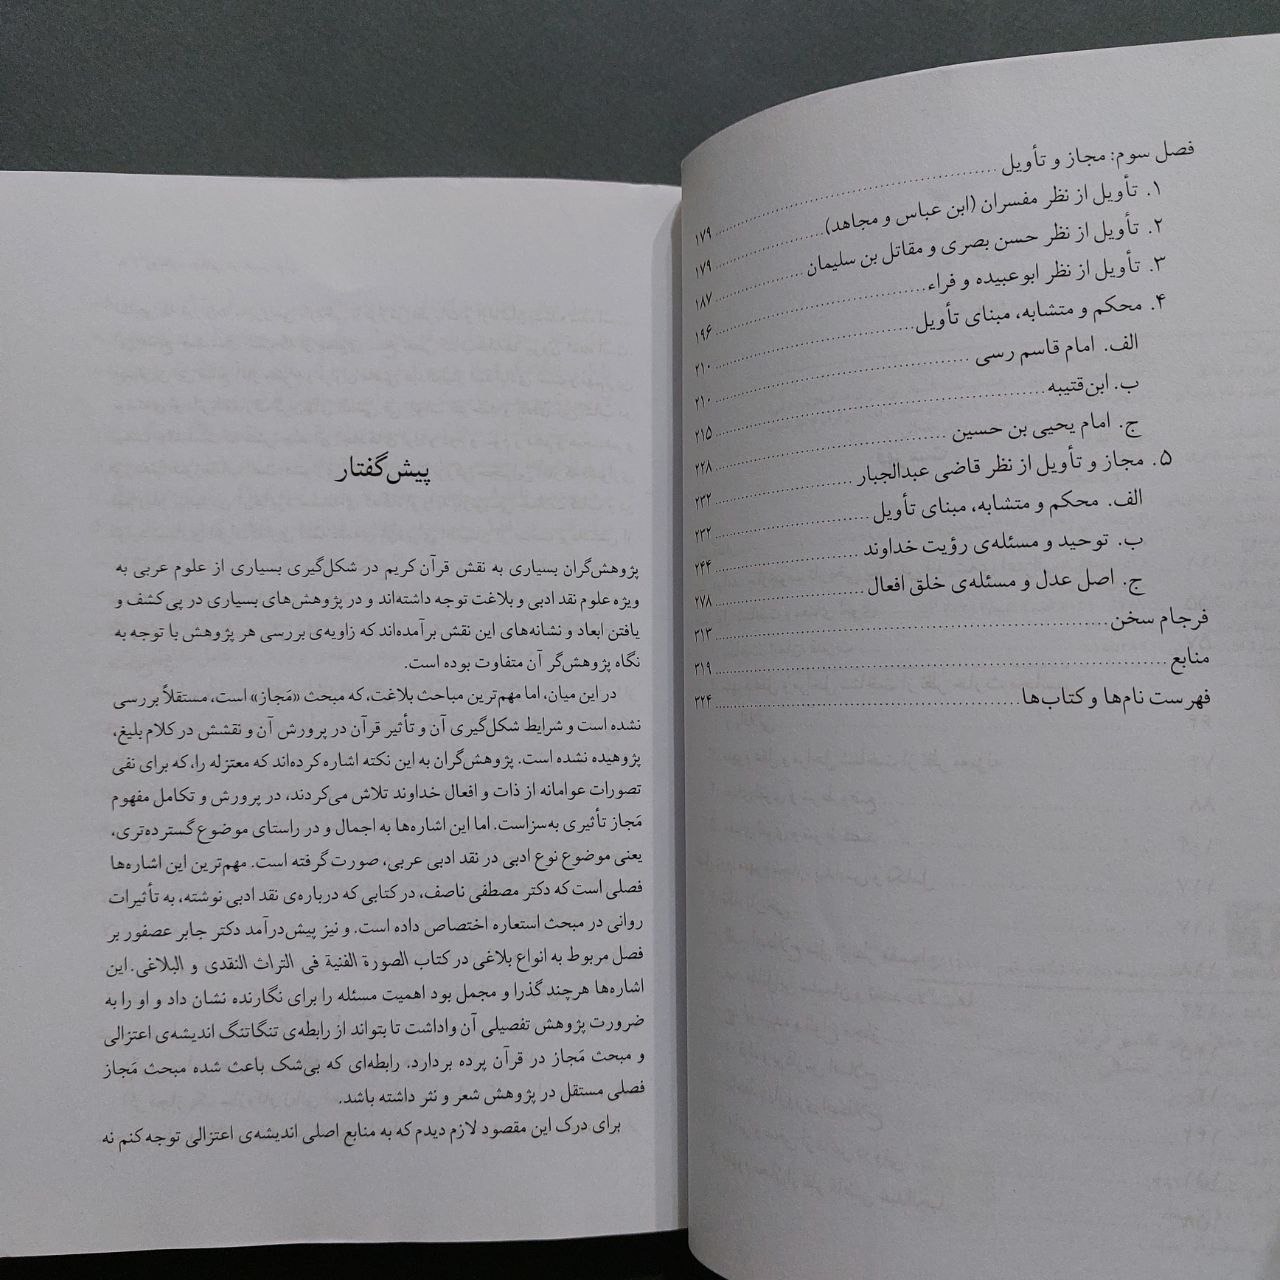 فصل سوم: مجاز و تأویل ........ ۱۷۹
۱. تأویل از نظر مفسران (ابن عباس و مجاهد) ........ ۱۷۹
۲. تأویل از نظر حسن بصری و مقاتل بن سلیمان ........ ۱۸۷
۳. تأویل از نظر ابوعبیده و فراء ........ ۱۹۶
۴. محکم و متشابه، مبنای تأویل ........ ۲۱۰
الف. امام قاسم رسی ........ ۲۱۰
ب. ابن‌قتیبه ........ ۲۱۵
ج. امام یحیی بن حسین ........ ۲۲۸
۵. مجاز و تأویل از نظر قاضی عبدالجبار ........ ۲۳۲
الف. محکم و متشابه، مبنای تأویل ........ ۲۳۲
ب. توحید و مسئله‌ی رؤیت خداوند ........ ۲۴۴
ج. اصل عدل و مسئله‌ی خلق افعال ........ ۲۷۸
فرجام سخن ........ ۳۱۳
منابع ........ ۳۱۹
فهرست نام‌ها و کتاب‌ها ........ ۳۲۴
پیش‌گفتار
پژوهش‌گران بسیاری به نقش قرآن کریم در شکل‌گیری بسیاری از علوم عربی به
ویژه علوم نقد ادبی و بلاغت توجه داشته‌اند و در پژوهش‌های بسیاری در پی کشف و
یافتن ابعاد و نشانه‌های این نقش برآمده‌اند که زاویه‌ی بررسی هر پژوهش با توجه به
نگاه پژوهش‌گر آن متفاوت بوده است.
در این میان، اما مهم‌ترین مباحث بلاغت، که مبحث «مَجاز» است، مستقلاً بررسی
نشده است و شرایط شکل‌گیری آن و تأثیر قرآن در پرورش آن و نقشش در کلام بلیغ،
پژوهیده نشده است. پژوهش‌گران به این نکته اشاره کرده‌اند که معتزله را، که برای نفی
تصورات عوامانه از ذات و افعال خداوند تلاش می‌کردند، در پرورش و تکامل مفهوم
مَجاز تأثیری به‌سزاست. اما این اشاره‌ها به اجمال و در راستای موضوع گسترده‌تری،
یعنی موضوع نوع ادبی در نقد ادبی عربی، صورت گرفته است. مهم‌ترین این اشاره‌ها
فصلی است که دکتر مصطفی ناصف، در کتابی که درباره‌ی نقد ادبی نوشته، به تأثیرات
روانی در مبحث استعاره اختصاص داده است. و نیز پیش‌درآمد دکتر جابر عصفور بر
فصل مربوط به انواع بلاغی در کتاب الصورة الفنیة فی التراث النقدی و البلاغی. این
اشاره‌ها هرچند گذرا و مجمل بود اهمیت مسئله را برای نگارنده نشان داد و او را به
ضرورت پژوهش تفصیلی آن واداشت تا بتواند از رابطه‌ی تنگاتنگ اندیشه‌ی اعتزالی
و مبحث مَجاز در قرآن پرده بردارد. رابطه‌ای که بی‌شک باعث شده مبحث مَجاز
فصلی مستقل در پژوهش شعر و نثر داشته باشد.
برای درک این مقصود لازم دیدم که به منابع اصلی اندیشه‌ی اعتزالی توجه کنم نه